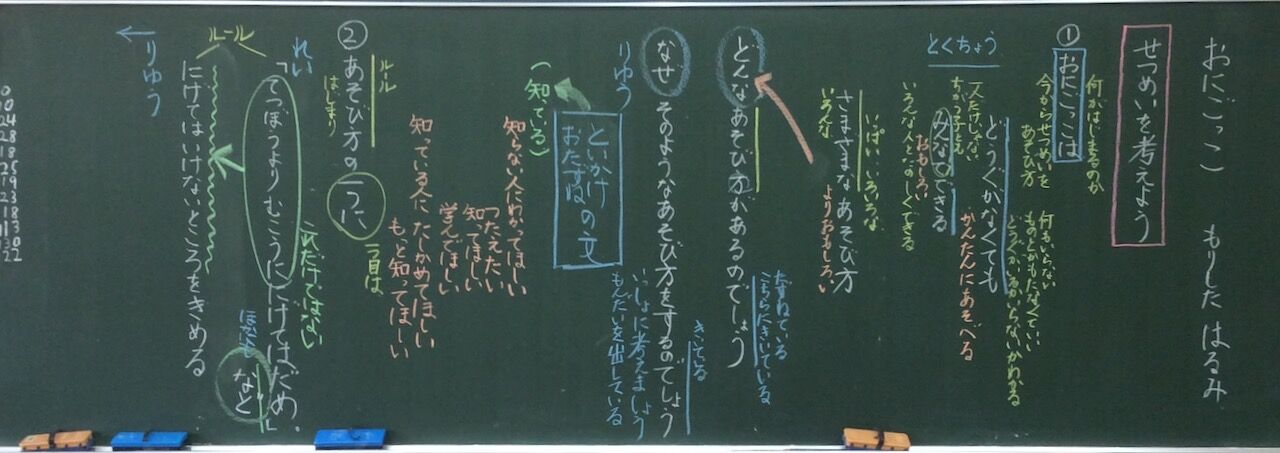 おにごっこ　もりした はるみ
せつめいを考えよう
①
おにごっこは
何がはじまるのか
今からせつめいを
あそび方
とくちょう
どうぐがなくても
何もいらない
ものとかもたなくていい
どうぐがいるかいらないかわかる
みんなでできる
かんたんにあそべる
一人だけじゃない
おもしろい
いろんな人とたのしくできる
さまざまなあそび方
いっぱい いろいろな
いろんな
よりおもしろい
どんなあそび方があるのでしょう
たずねている
こちらにきいている
なぜ そのようなあそび方をするのでしょう
きいている
りゆう
いっしょに考えましょう
もんだいを出している
といかけ
おたずね
の文
(知っている)
知らない人にわかってほしい
つたえたい
知ってほしい
学んでほしい
知っている人に たしかめてほしい
もっと知ってほしい
②
あそび方の一つに、
ルール
はじまり
一つ目は
れい
「てつぼうよりむこうににげてはだめ。」
これだけではない
など
ほかにも
にげてはいけないところをきめる
ルール
りゆう